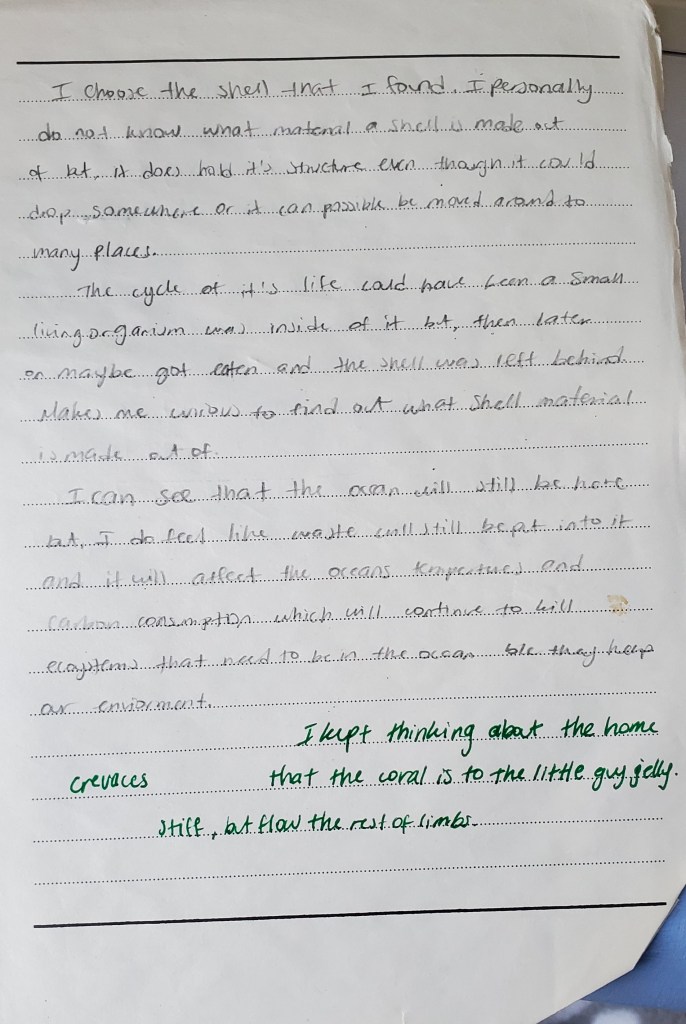 I choose the shell that I found. I personally
do not know what material a shell is made out
of but, it does hold it's structure even though it could
drop somewhere or it can possible be moved around to
many places.
The cycle of it's life could have been a small
living organism was inside of it but, then later
on maybe got eaten and the shell was left behind.
Makes me curious to find out what shell material
is made out of.
I can see that the ocean will still be here
but, I do feel like waste will still be put into it
and it will affect the oceans temperatures and
carbon consumption which will continue to kill
ecosystems that need to be in the ocean b/c they help
our enviorment.
I kept thinking about the home
crevaces that the coral is to the little guy, jelly.
stiff, but flow the rest of limbs.